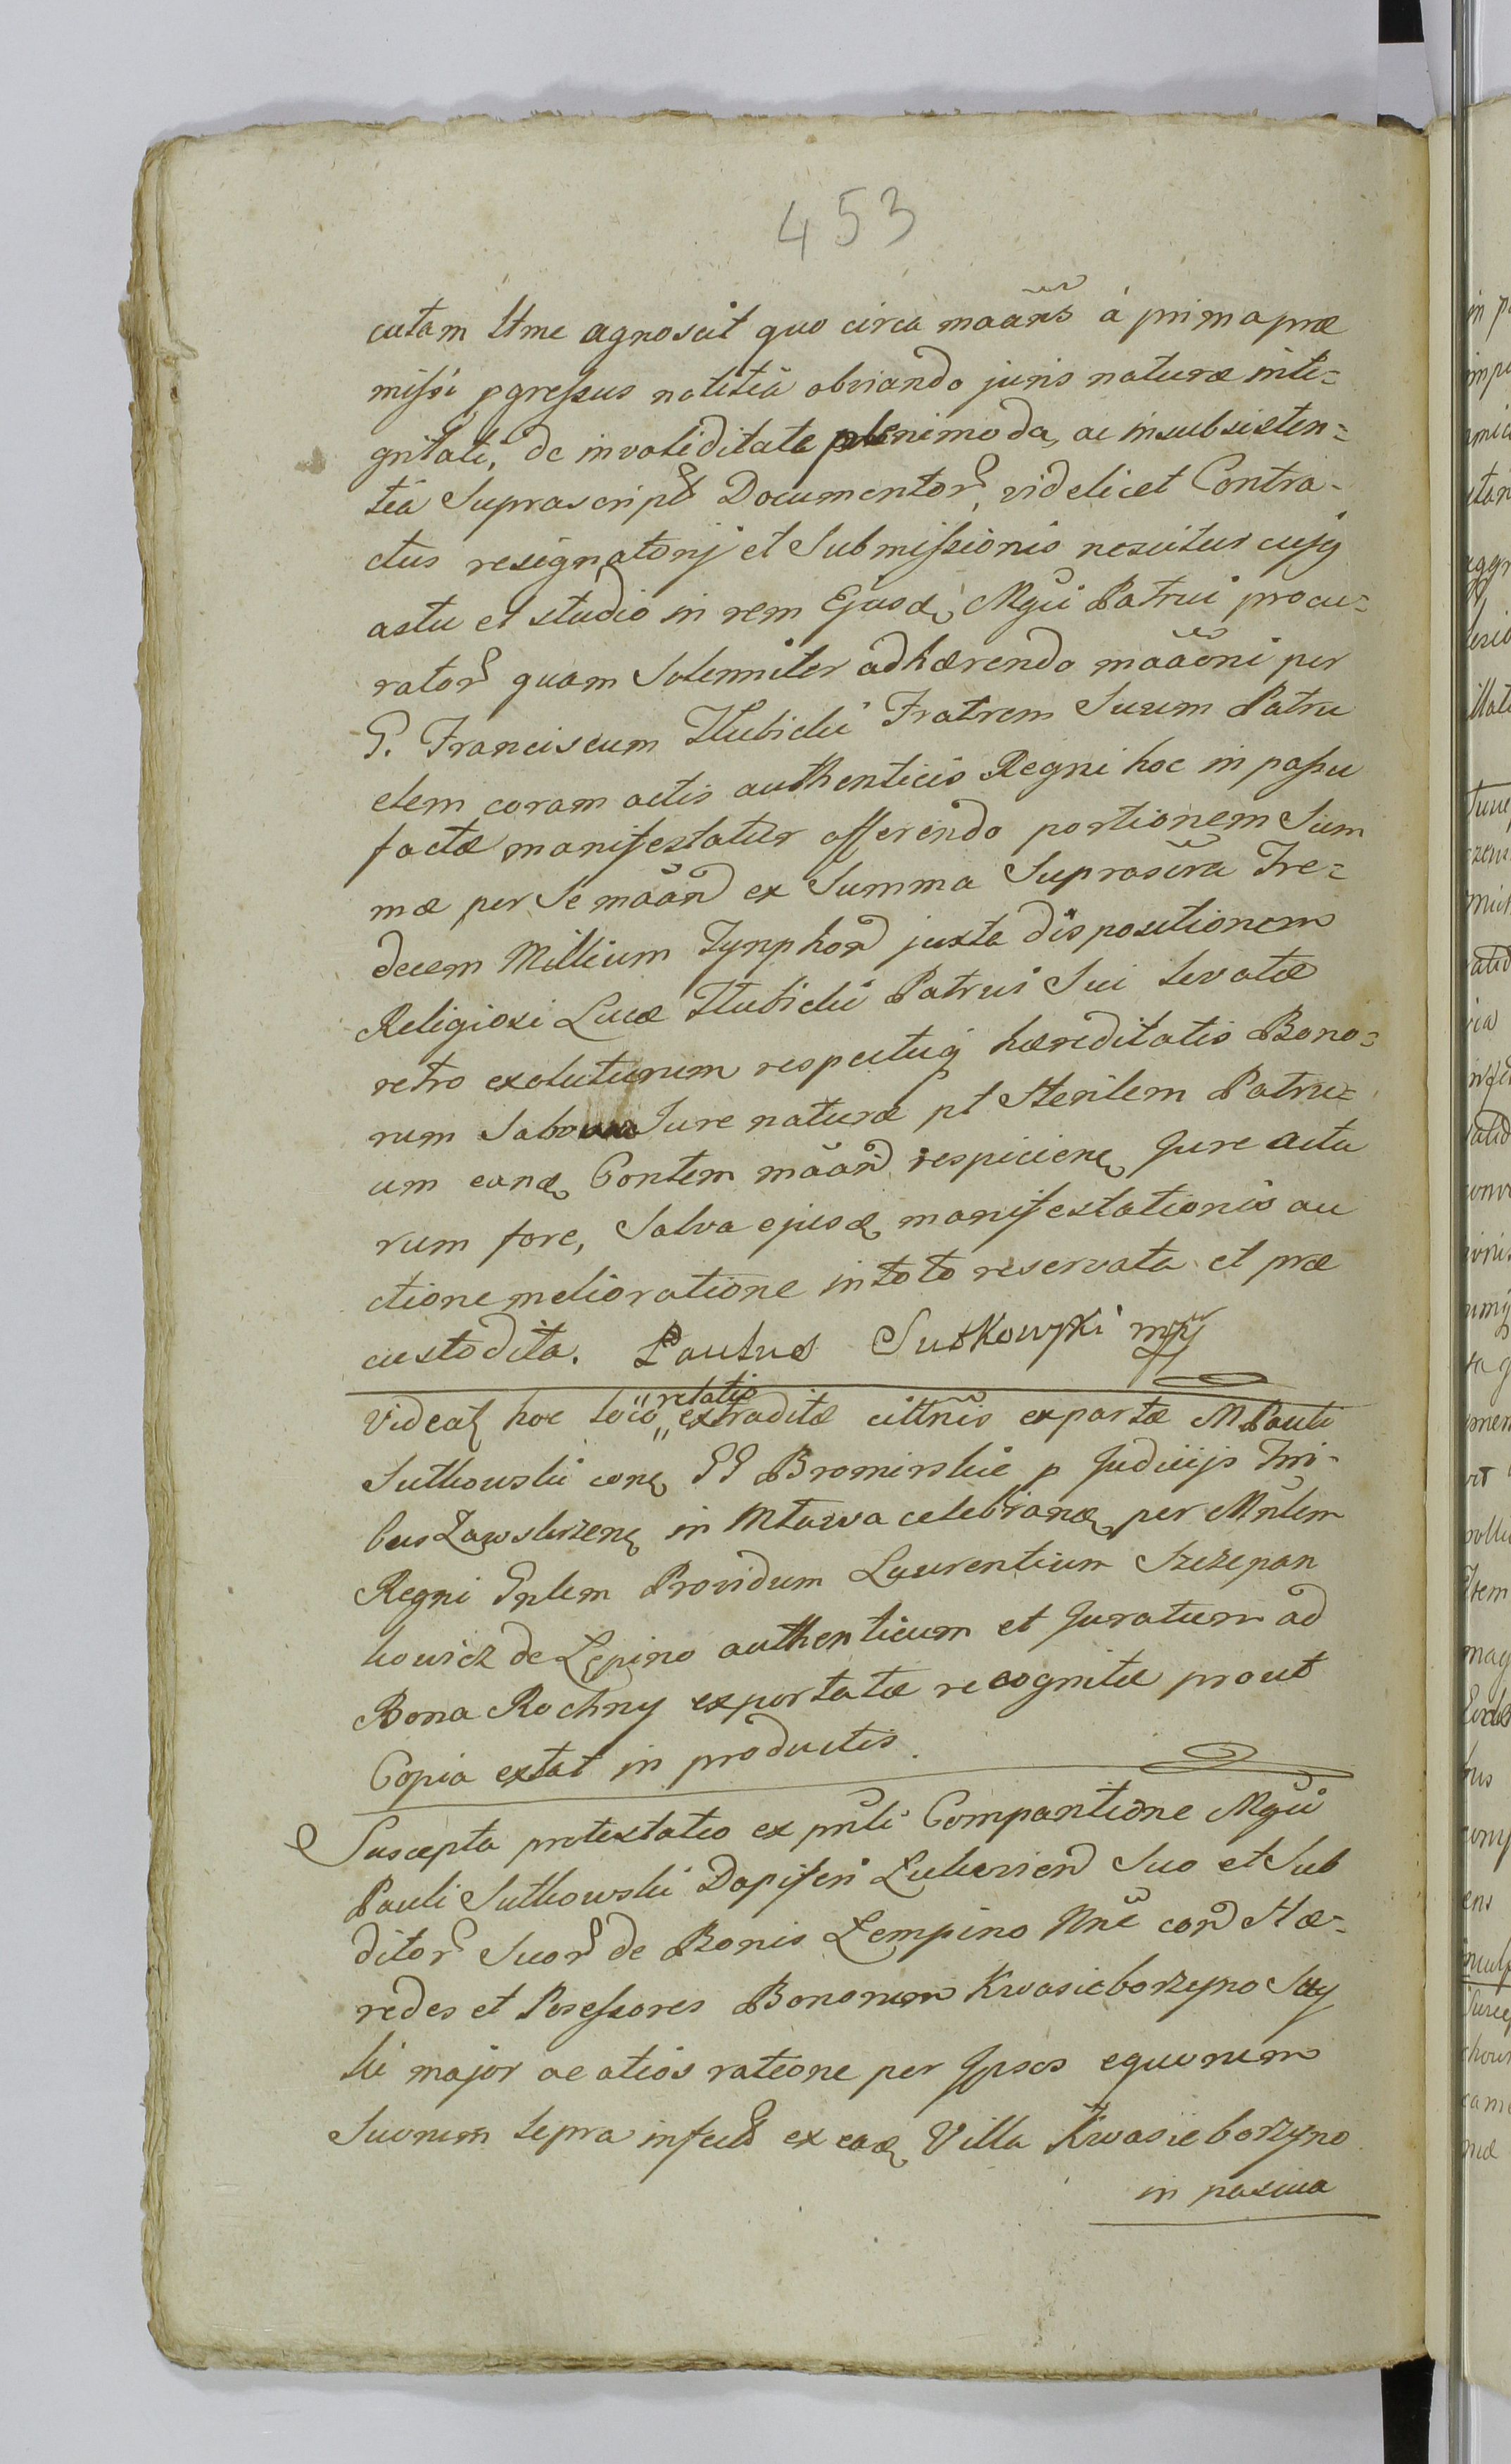 453
cutam ltme agnoscit quo circa maans á prima præ
missi pgressus notitia obviando juris naturæ inte=
gritati, de invaliditate plenimoda, ac insubsisten=
tia Suprascript Documentor, videlicet Contra-
ctus resignatorij et Submissionis nescitur cujq
astu et studio in rem Ejusd, Mgci Patrui procu=
rator quam Solenniter adhærendo maaoni per
G. Franciscum Hubicki Fratrem Suum Patru
elem coram actis authenticis Regni hoc in passu
factæ manifestatur offerendo portionem Sum
mæ per Se maan ex Summa Suprascra Tre=
decem Millium Tynphon juxta dispositionem
Religiosi Lucæ Hubicki Patrui Sui levatæ
retro exoluturum respectuq hæreditatis Bono=
rum Jure naturæ pt Sterilem Patru=
um eand Contem maan respicien Jure actu
rum fore, Salva ejusd manifestationis au
ctione melioratione in toto reservata et præ
custodita. Paulus Sutkowski mp
Videat hoc loco „relatio„ extraditæ cittnis ex parte M Pauli
Sutkowski con GG Bromirskie p Judicijs Tri-
bus Zawskrzen in Mława celebrand per Mnlem
Regni Gnlem Providum Laurentium Szczepan
kowicz de Lępino authenticum et Juratum ad
Bona Rochny exportatæ recognitæ prout
Copia extat in productis.
Suscepta protestatio ex pnli Comparitione Mgci
Pauli Sutkowski Dapiferi Lukovien Suo et Sub
ditor Suor de Bonis Lempino Nne con Hæ-
redes et Possessores Bonorum Kwasieborzyno Szy
ki major ac alios ratione per Ipsos equorum
Suorum Lepra infect ex ead Villa Kwasieborzyno
in pascua